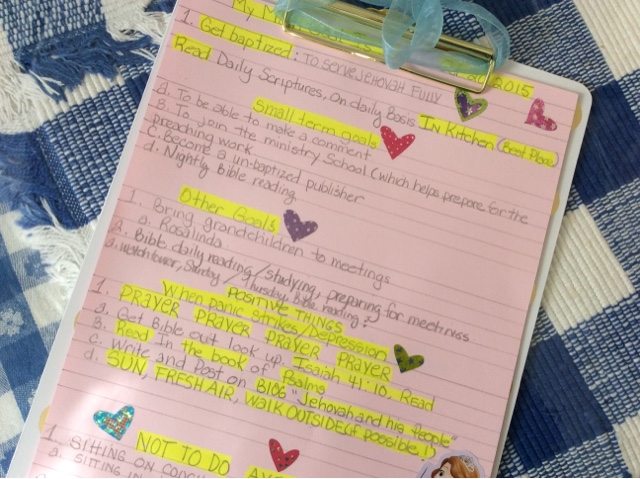 My
1. Get baptized: To serve Jehovah Fully
2015
Read Daily Scriptures, on daily Basis In Kitchen (Best Place)
Small term goals
a. To be able to make a comment
B. To join the ministry School (which helps prepare for the
preaching work.
C. Become a un-baptized publisher
d. Nightly Bible reading.
Other Goals
1. Bring grandchildren to meetings
a. Rosalinda
2. Bible daily reading/studying, preparing for meetings
a. Watchtower, Sunday / Thursday Bible reading?
POSITIVE THINGS
1. When panic strikes/Depression
PRAYER PRAYER PRAYER PRAYER
a. Get Bible out look up Isaiah 41:10. Read
B. Read In the book of Psalms
c. Write and Post on BLOG "Jehovah and his People"
d. SUN, FRESH AIR, WALK OUTSIDE (if possible!)
NOT TO DO
1. SITTING ON COUCH
a. SITTING IN